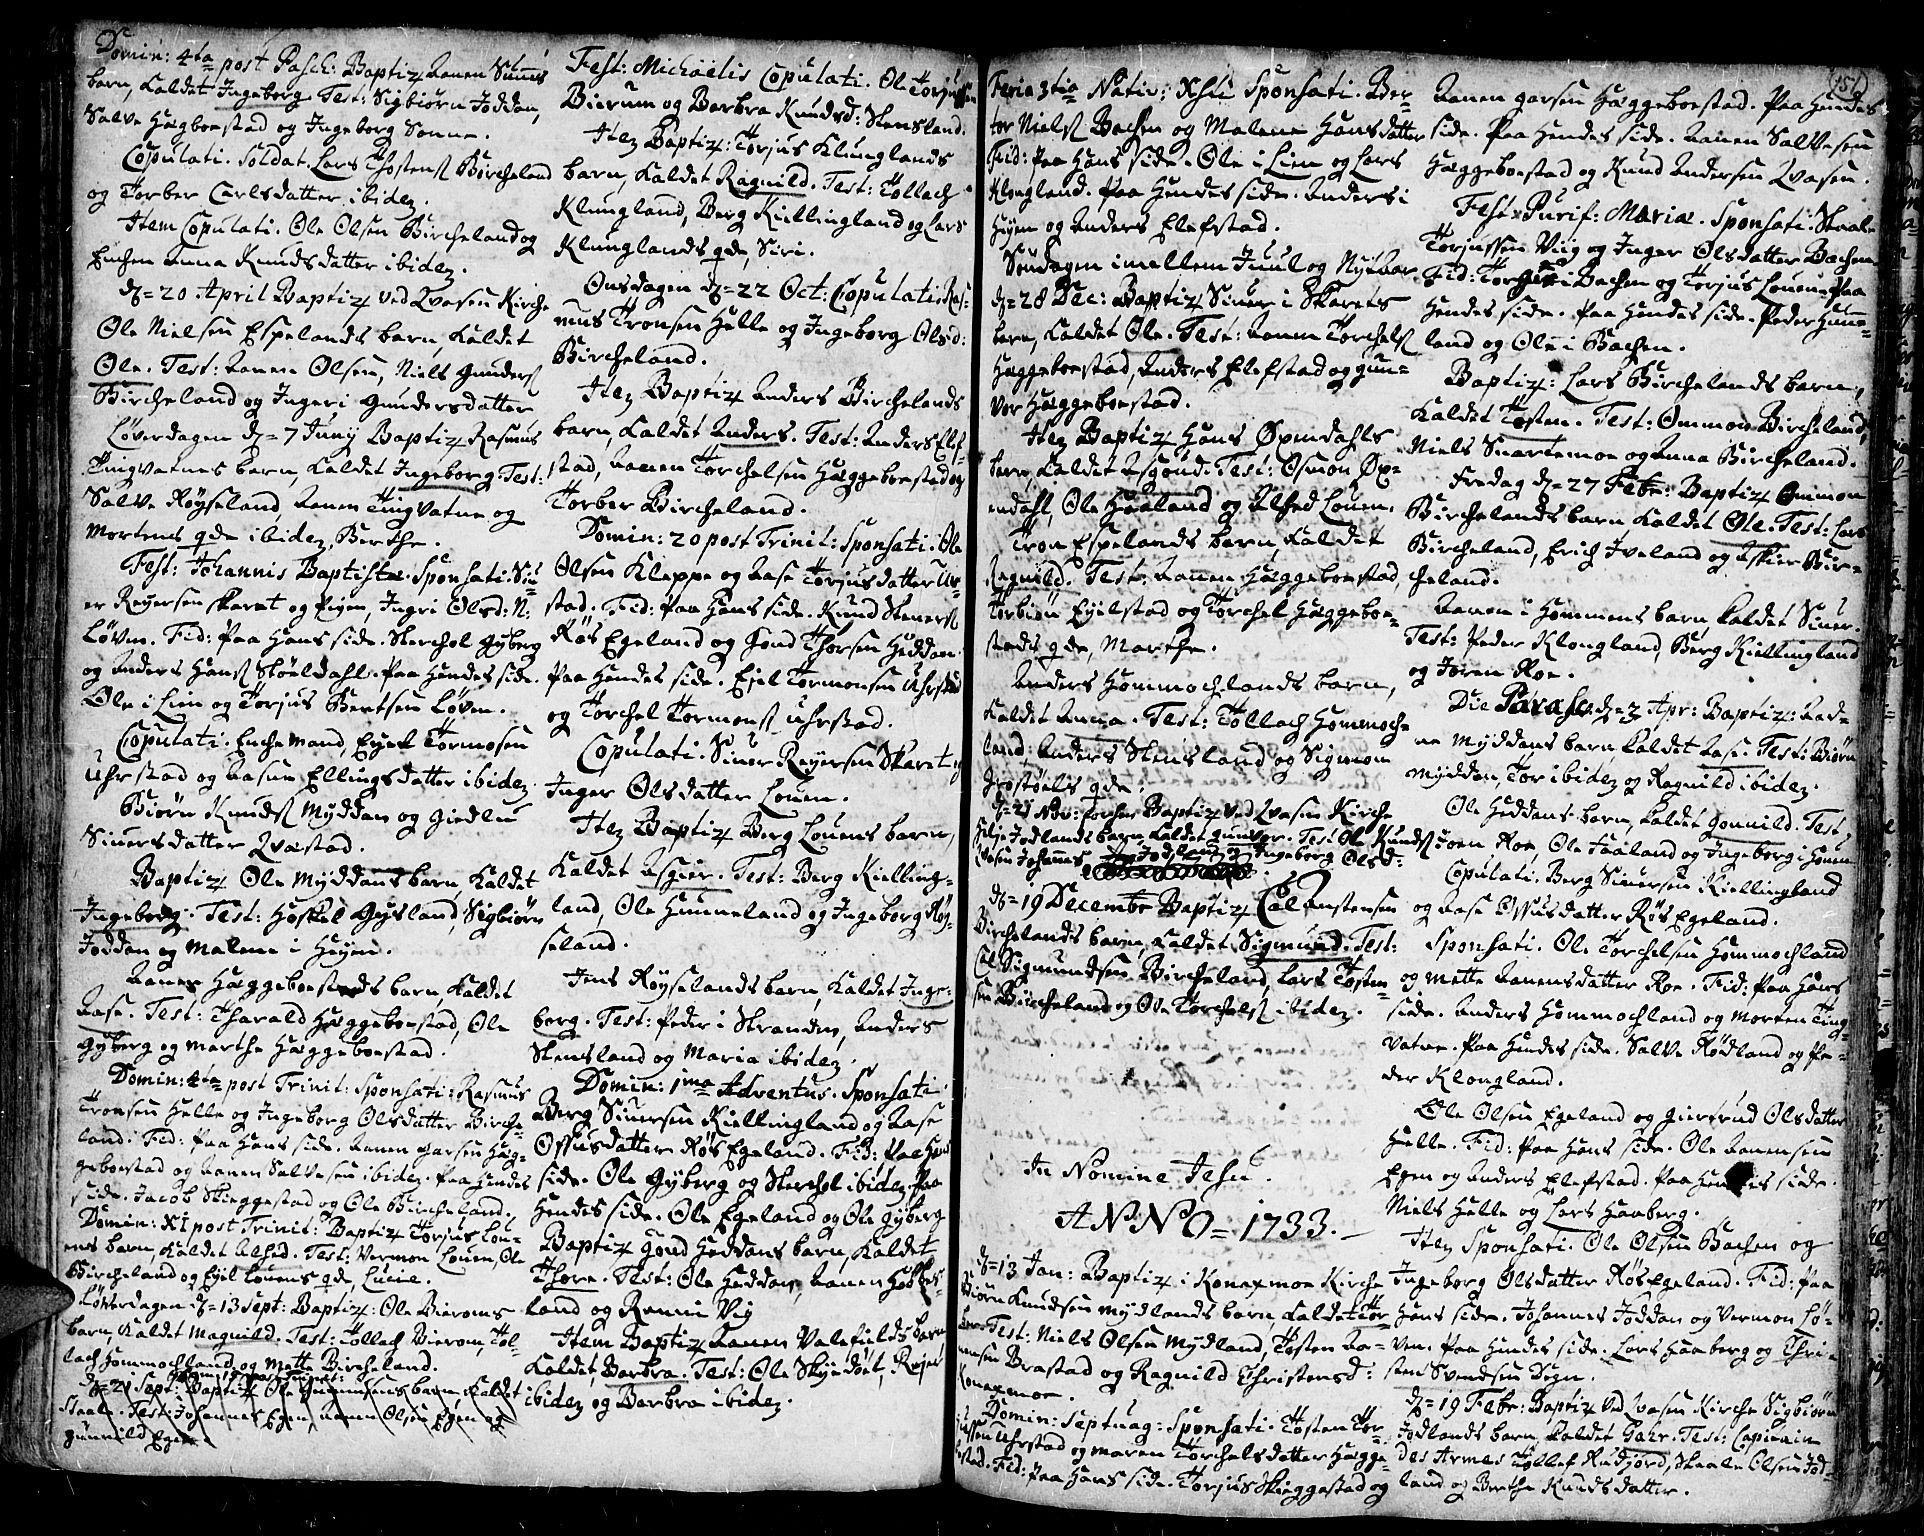 Domin: 4ta post Pasch: Baptiz Aanen Sunns
barn, kaldet Ingeborg. Test: Sigbiørn Joddan,
Salve Hægboestad og Ingeborg Sonne.
Copulati. Soldat. Lars Thostens Bircheland
og Torber Carlsdatter ibidem.
Item Copulati. Ole Olsen Bircheland og
Enchen Anna Knudsdatter ibidem.
d. 20 April Baptiz ved Qvasen Kirche
Ole Nielsen Espelands barn, kaldet
Ole. Test: Aanen Olsen, Niels Gunders
Bircheland og Ingeri Gundersdatter
Løverdagen d. 7 Junij Baptiz Rasmus
Tingvatnes barn, kaldet Ingeborg. Test:
Salve Røyseland, Aanen Tingvatne og
Mortens qde ibidem, Berthe.
Fest: Johannis Baptistæ. Sponsati. Siu-
er Reyersen Skaret og Pigen, Ingri Olsd: N:
Løven. Fid: paa Hans side. Skerchol Gyberg
og Anders Hans Skøldahl. Paa Hendes side.
Ole i Liin og Torjus Bertsen Løven.
Copulati. Enchemand, Eyel Tormosen
Uhrstad og Aasne Ellingsdatter ibidem.
Biørn Knuds Myddan og Giedlu
Siversdatter Qvæstad.
Baptiz Ole Myddans barn, kaldet
Ingeborg. Test: Heskel Gysland, Sigbiørn
Joddan og Malene i Høyen.
Aanen Hæggeboestads barn, kaldet
Aase. Test: Tharald Hæggeboestad, Ole
Gyberg og Marthe Hæggeboestad.
Domin: 4ta post Trinit: Sponsati. Rasmus
Tronsen Helle og Ingeborg Olsdatter Birche-
land. Fid: paa Hans side. Aanen Garsen Hæg-
geboestad og Aanen Salvesen ibidem. Paa Hendes
side. Jacob Skieggestad og Ole Bircheland.
Domin: XI post Trinit: Baptiz Torjus Lou-
ens barn, kaldet Alfed. Test: Vermon Louen, Ole
Bircheland og Eyel Louens qde Lucie.
Løverdagen d. 13 Sept: Baptiz: Ole Bieroms
barn, kaldet Magnild. Test: Tollach Bierom, Tol-
lach Hommochland og Mette Bircheland.
d. 21 Sept: Baptiz Ole Gunnensens barn, kaldet
Staale. Test: Johannes Egen, Aanen Olsen Egen og
Gunnild Egen.
Fest: Michaëlis Copulati. Ole Torjussen
Bierum og Berbra Knudsd: Stensland.
Item Baptiz: Torjus Klunglands
barn, kaldet Ragnild. Test: Tollach
Klungland, Berg Kiellingland og Lars
Klunglands qde, Siri.
Onsdagen d. 22 Oct: Copulati. Ras-
mus Tronsen Helle og Ingeborg Olsd:
Bircheland.
Item Baptiz Anders Birchelands
barn, kaldet Anders. Test: Anders Elef-
stad, Aanen Torchelsen Hæggeboestad og
Torber Bircheland.
Domin: 20 post Trinit: Sponsati. Ole
Olsen Kleppe og Aase Torjusdatter Uhr-
stad. Fid: paa Hans side. Knud Steners
Røs Egeland og Gond Thorsen Heddan.
Paa Hendes side. Eyel Tormonsen Uhrstad
og Torchel Tormons Uhrstad.
Copulati. Siver Reyersen Skaret og
Inger Olsdatter Louen.
Item Baptiz Berg Louens barn,
kaldet Asgier. Test: Berg Kielling-
land, Ole Hunneland og Ingeborg Røy-
seland.
Jens Røyselands barn, kaldet Inge-
borg. Test: Peder i Stranden, Anders
Stensland og Maria ibidem.
Domin: 1ma Adventus. Sponsati
Berg Siversen Kiellingland og Aase
Ossusdatter Røs Egeland. Fid: paa Hans
side. Ole Gyberg og Skerchol ibidem. Paa
Hendes side. Ole Egeland og Ole Gyberg
Baptiz Gond Heddans barn, kaldet
Thore. Test: Ole Heddan, Aanen
land og Rannei Vig
Item Baptiz Aanen Valefields barn
kaldet Barbra. Test: Ole Skyndøt, Rejer
ibidem og Berbra ibidem.
Feria 3tia Nativ: Xsti Sponsati. Ber-
tor Niels Bachen og Malene Hansdatter
Fid: paa Hans side. Ole i Liin og Lars
Klongland. Paa Hendes side. Anders i
Høyen og Anders Elefstad.
Søndagen imellem Juul og Nytaar
d. 28 Dec: Baptiz Siver i Skarets
barn, kaldet Ole. Test: Aanen Torchels
Hæggeboestad, Anders Elefstad og Gun-
vor Hæggeboestad.
Item Baptiz Hans Øpsendahls
barn, kaldet Asgoud. Test: Osmon Øp-
endahl, Ole Haaland og Alfed Louen.
Tron Espelands barn, kaldet
Ragnild. Test: Aanen Hæggeboestad,
Torbiøn Eyelstad og Torchel Hæggeboe-
stads qde, Marthe.
Anders Hommochlands barn,
kaldet Anna. Test: Tollach Hommoch-
land, Anders Stensland og Sigmon
qde.
d. 23 Nov: Baptiz ved Qvasen Kirche
Jodlands barn, kaldet Gunvor. Test: Ole Knuds
Qvasen Johannes Jodland og Ingeborg Olsd:
d. 19 Decembr Baptiz Cal Anstensen
Birchelands barn, kaldet Sigmund. Test:
Cal Sigmundsen Bircheland, Lars Tosten-
sen Bircheland og Ole Torchels ibidem.
In Nomine Jesu.
ANNO 1733.
d. 13 Jan: Baptiz i Konaxmoe Kirche
Biørn Knudsen Mydlands barn kaldet Tor-
Test: Niels Olsen Mydland, Tosten Aa-
nensen Brastad og Ragnild Christensd:
Konaxmoe.
Domin: Septuag: Sponsati. Tosten Tor-
jussen Uhrstad og Maren Torchelsdatter Hægge-
bostad. Fid: paa Hans side. Torjus Skieggestad og
(151)
Aanen Garsen Hæggeboestad. Paa Hendes
side. Paa Hendes side. Aanen Salvesen
Hæggeboestad og Knud Andersen Qvasen.
Fest: Purif: Mariæ. Sponsati. Staale
Torjussen Viig og Inger Olsdatter Bachen
Fid: Torgier i Bachen og Torjus Louen. Paa
Hendes side. Paa Hendes side. Peder Hunne-
land og Ole i Bachen.
Baptiz: Lars Birchelands barn,
kaldet Tosten. Test: Ommon Bircheland,
Niels Snartemoe og Anna Bircheland.
Fredag d. 27 Febr: Baptiz Ommon
Birchelands barn kaldet Ole. Test: Lars
Bircheland, Erich Iveland og Askier Bir-
cheland.
Aanen i Hommens barn kaldet Siver.
Test: Peder Klongland, Berg Kiellingland
og Joren Roe.
Die Parasc: d. 3 Apr: Baptiz: Aad-
ne Myddans barn kaldet Aase. Test: Biørn
Myddan, Tor ibidem og Ragnild ibidem.
Ole Heddans barn, kaldet Gonnild. Test:
Joen Roe, Ole Faaland og Ingeborg i Homme
Copulati. Berg Siversen Kiellingland
og Aase Ossusdatter Røs Egeland.
Sponsati. Ole Torchelsen Hommochland
og Mette Aanensdatter Roe. Fid: paa Hans
side. Anders Hommochland og Morten Ting-
vatne. Paa Hendes side. Salve Rødland og Pe-
der Klongland.
Ole Olsen Egeland og Giertrud Olsdatter
Helle. Fid: paa Hans side. Ole Aanensen
Egen og Anders Elefstad. Paa Hendes side.
Niels Helle og Lars Haaberg.
Item Sponsati. Ole Olsen Bachen og
Ingeborg Olsdatter Røs Egeland. Fid: paa
Hans side. Johannes Joddan og Vermon Lø-
ven. Paa Hendes side. Lars Haaberg og Thri-
sten Svendsen Degn.
d. 19 Febr: Baptiz ved Qvasen Kirche Sigbiørn
Jodlands barn, kaldet Gahr. Test: Capitain
des Armes Tollef Rudjord, Staale Olsen Jod-
land og Berthe Knudsdatter.